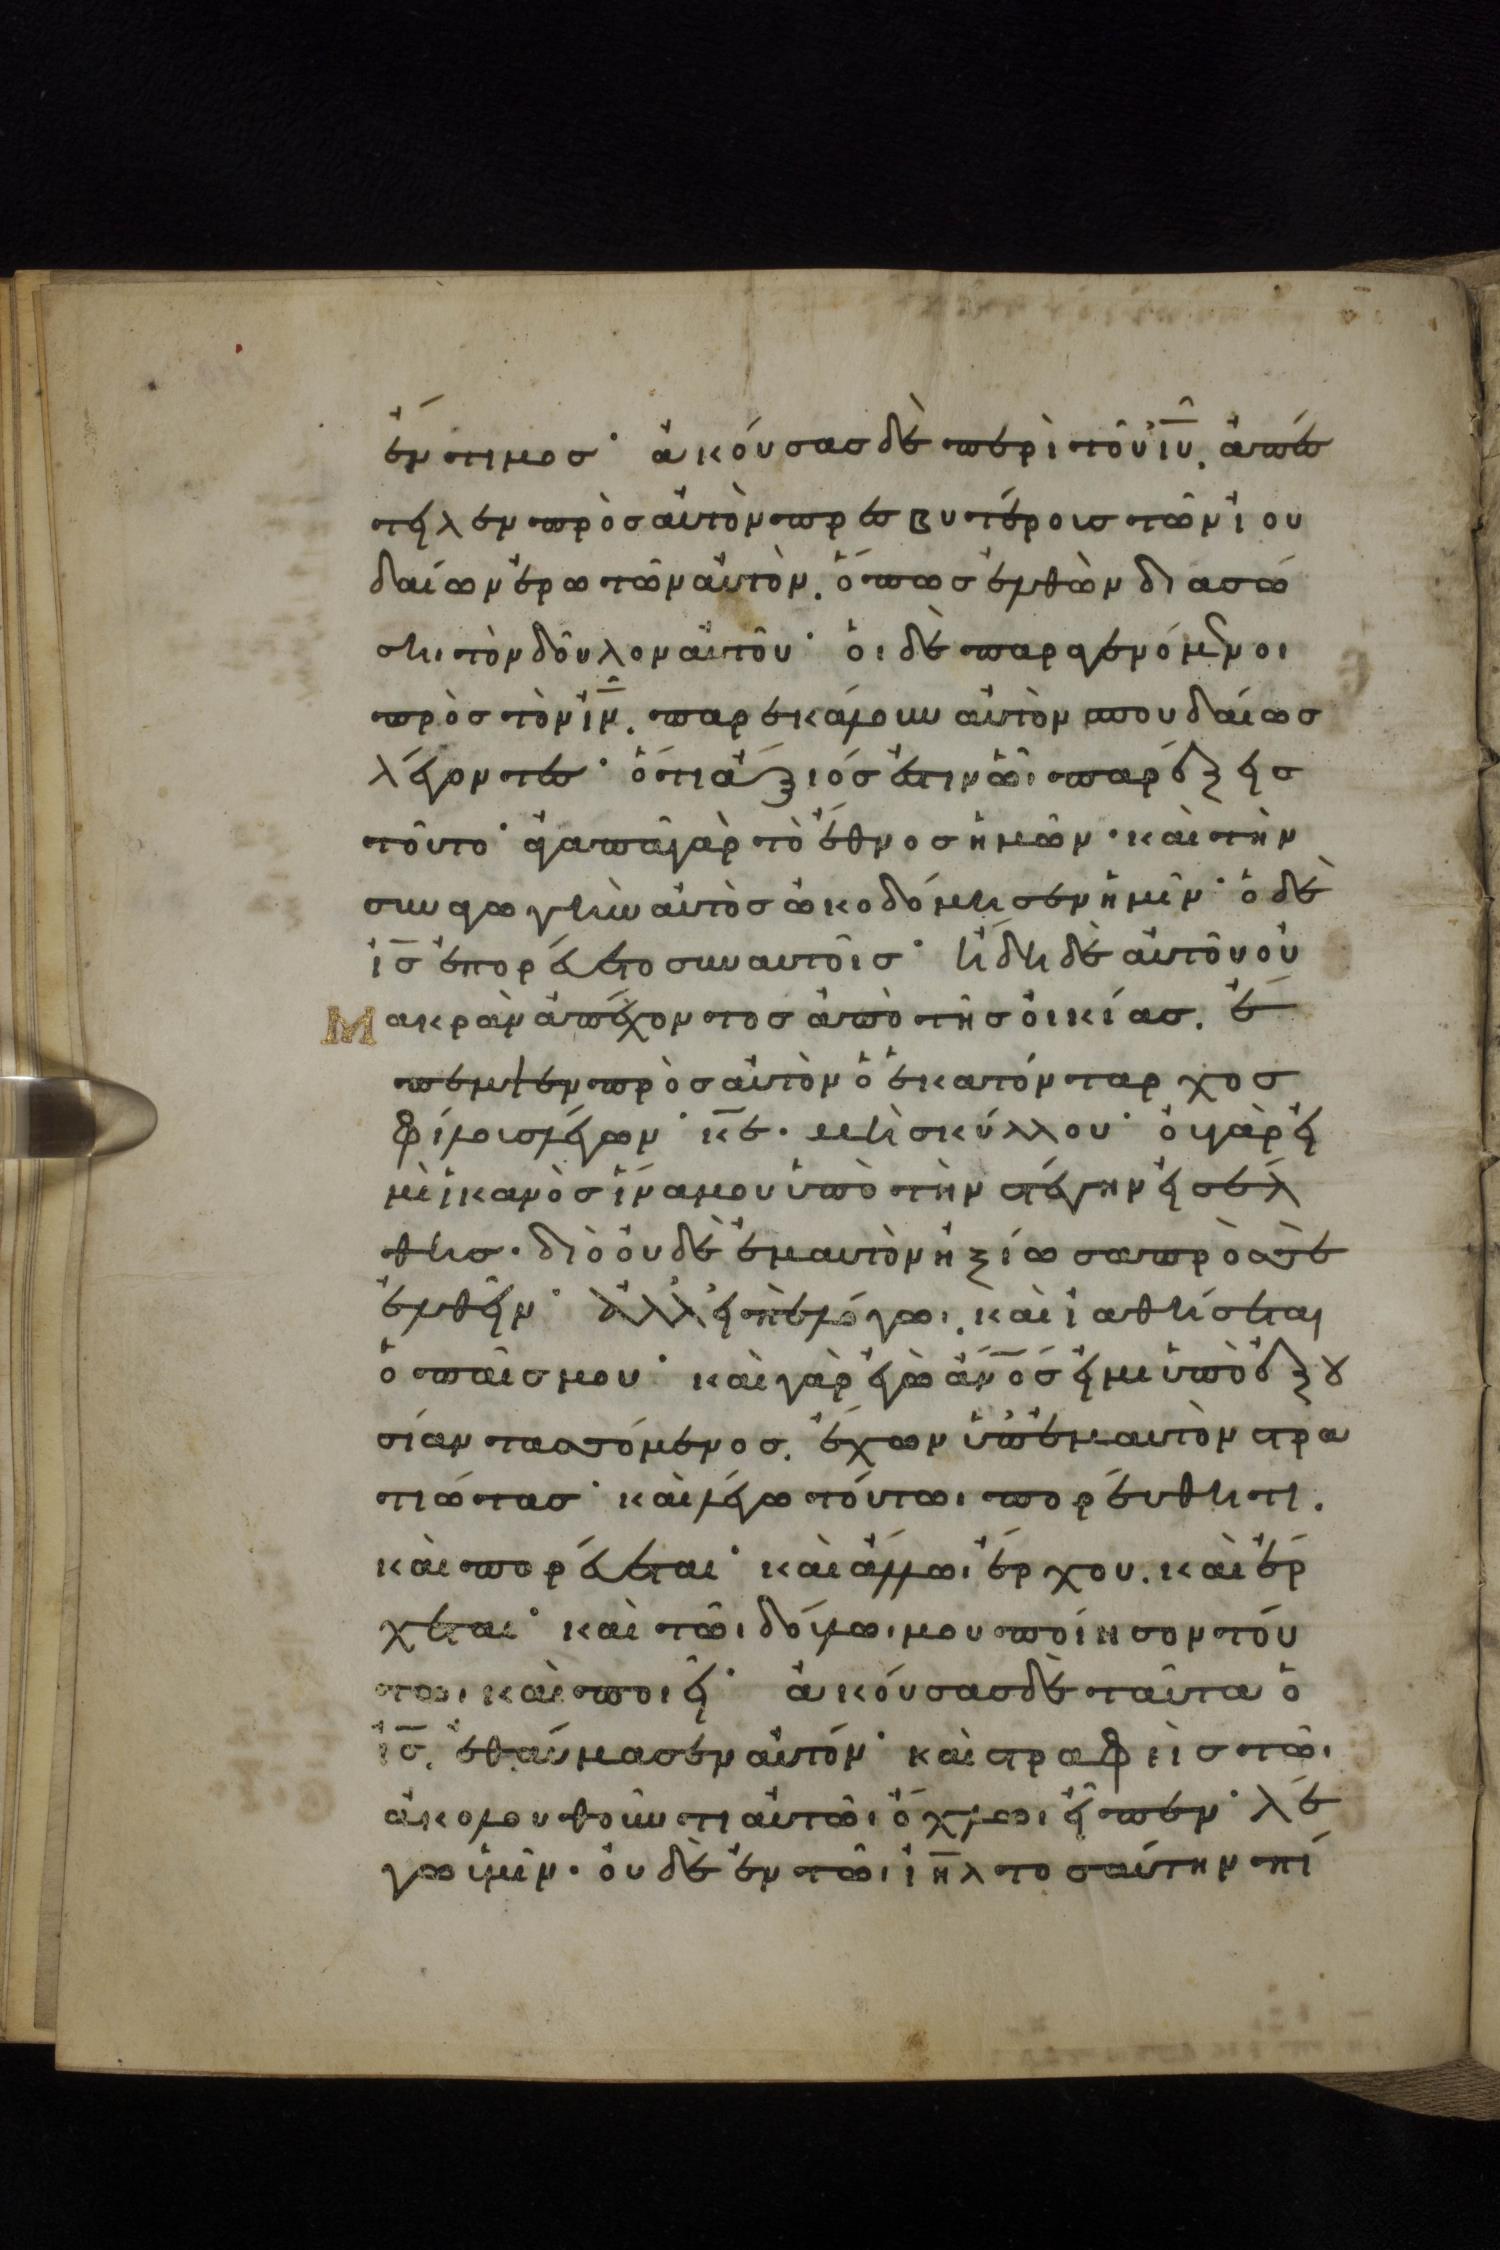 ἔντιμος· ἀκούσας δὲ περὶ τοῦ ἰῦ, ἀπέσ
τειλεν πρὸς αὐτὸν πρεσβυτέροις τῶν ἰου
δαίων ἐρωτῶν αὐτὸν, ὅπως ἐλθὼν διασώ
ση τὸν δοῦλον αὐτοῦ· οἱ δὲ παραγενόμενοι
πρὸς τὸν ἰν, παρεκάλουν αὐτὸν σπουδαίως
λέγοντες· ὅτι ἄξιός ἐστιν ὧι παρέξεις
τοῦτο· ἀγαπᾶ γὰρ τὸ ἔθνος ἡμῶν· καὶ τὴν
συναγωγὴν αὐτὸς ὠκοδόμησεν ἡμῖν· ὁ δὲ
ἰς ἐπορεύετο συν αυτοῖς· ἤδη δὲ αὐτοῦ οὐ
Μακρὰν ἀπέχοντος ἀπὸ τῆς οἰκίας, ἔ
πεμψεν πρὸς αὐτὸν ὁ ἑκατόνταρχος
φίλοις λέγων· κε· μὴ σκύλλου· οὐ γὰρ εἰ
μὶ ἱκανὸς ἵνα μου ὑπὸ τὴν στέγην εἰσέλ
θης· διὸ οὐδὲ ἐμαυτὸν ἠξίωσα πρὸς σὲ
ἐλθεῖν· ἀλλ' εἰπὲ λόγωι, καὶ ἰαθήσεται
ὁ παῖς μου· καὶ γὰρ ἐγὼ ἄνός εἰμι ὑπὸ ἐξου
σίαν τασσόμενος, ἔχων ὑπ' ἐμαυτὸν στρα
τιώτας· καὶ λέγω τούτωι πορεύθητι.
καὶ πορεύεται· καὶ ἄλλωι ἔρχου. καὶ ἔρ
χεται· καὶ τῶι δούλωι μου ποίησον τοῦ
το, καὶ ποιεῖ· ἀκούσας δὲ ταῦτα ὁ
ἰς, ἐθαύμασεν αὐτόν· καὶ στραφεὶς τῶι
ἀκολουθοῦντι αὐτῶι ὄχλωι εἶπεν· λέ
γω ὑμῖν· οὐδὲ ἐν τῶι ἰηλ τοσαύτην πί